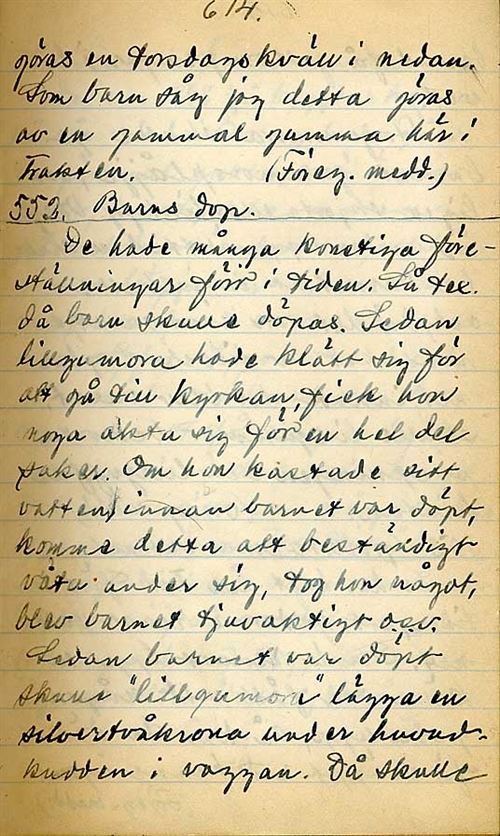 614.
göras en torsdagskväll i nedan.
Som barn såg jag detta göras
av en gammal gumma här i
trakten. (Föreg. medd.)
553. Barns dop.
De hade många konstiga före-
ställningar förr i tiden. Så tex.
då barn skulle döpas. Sedan
lillgumora hade klätt sig för
att gå till kyrkan, fick hon
noga akta sig för en hel del
saker. Om hon kastade sitt
vatten, innan barnet var döpt,
komme detta att beständigt
väta under sig, tog hon något,
blev barnet tjuvaktigt osv.
Sedan barnet var döpt
skulle "lillgumora" lägga en
silvertvåkrona under huvud-
kudden i vaggan. Då skulle